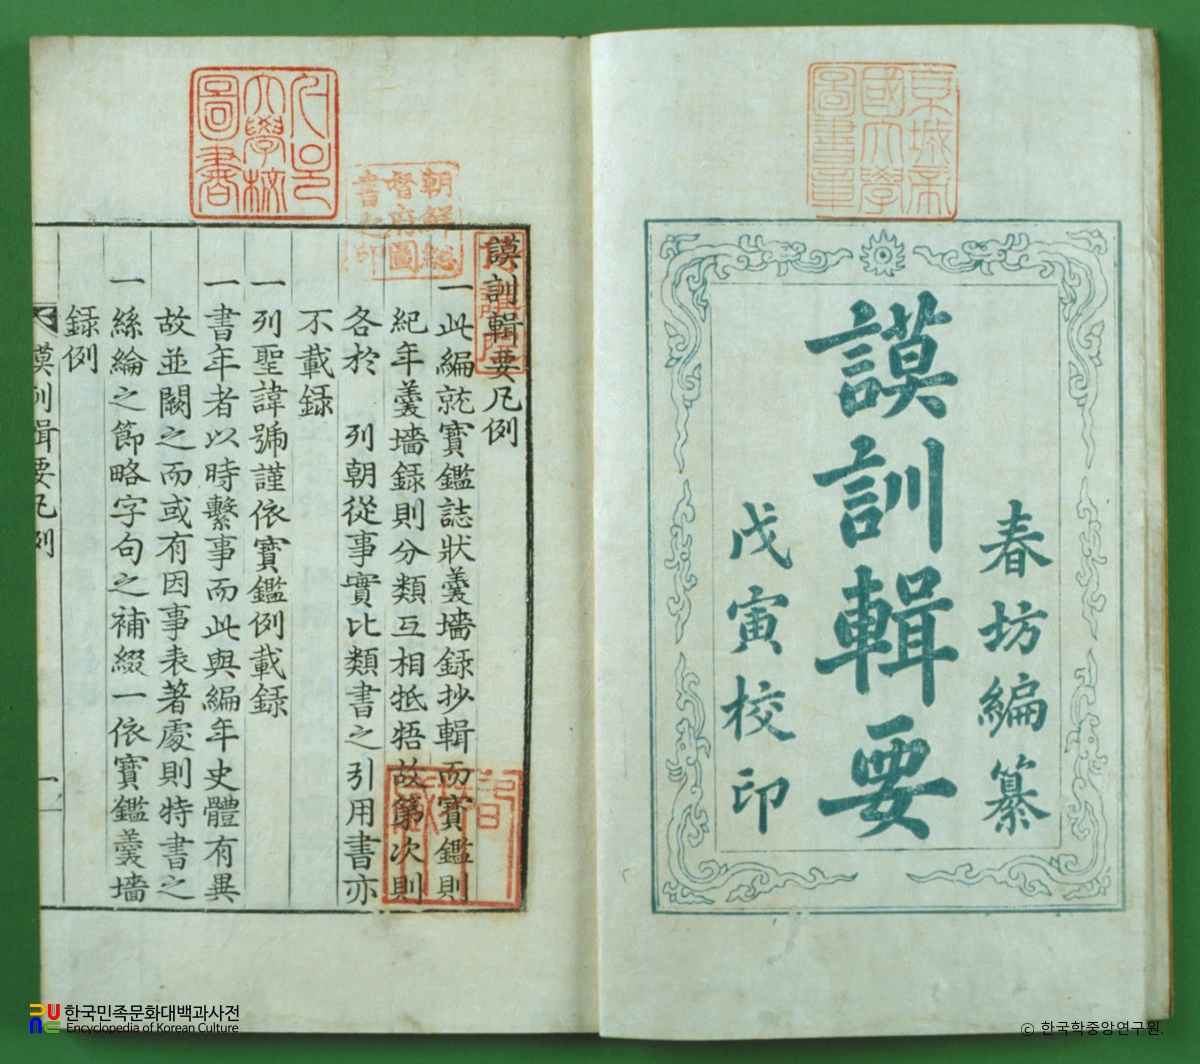 京城帝
國大學
圖書章
春坊編纂
謨訓輯要
戊寅校印
서울
大學校
圖書
朝鮮総
督府圖
書之印
謨訓輯要凡例
一此編就寶鑑誌狀羹墻録抄輯而寶鑑則
紀年羹墻録則分類互相牴牾故第次則
各於 列朝從事實比類書之引用書亦
不載録
一列聖諱號謹依寶鑑例載録
一書年者以時繫事而此與編年史體有異
故並闕之而或有因事表著處則特書之
一絲綸之節略字句之補綴一依寶鑑羹墻
録例
謨訓輯要凡例
一
한국민족문화대백과사전
Encyclopedia of Korean Culture
© 한국학중앙연구원.